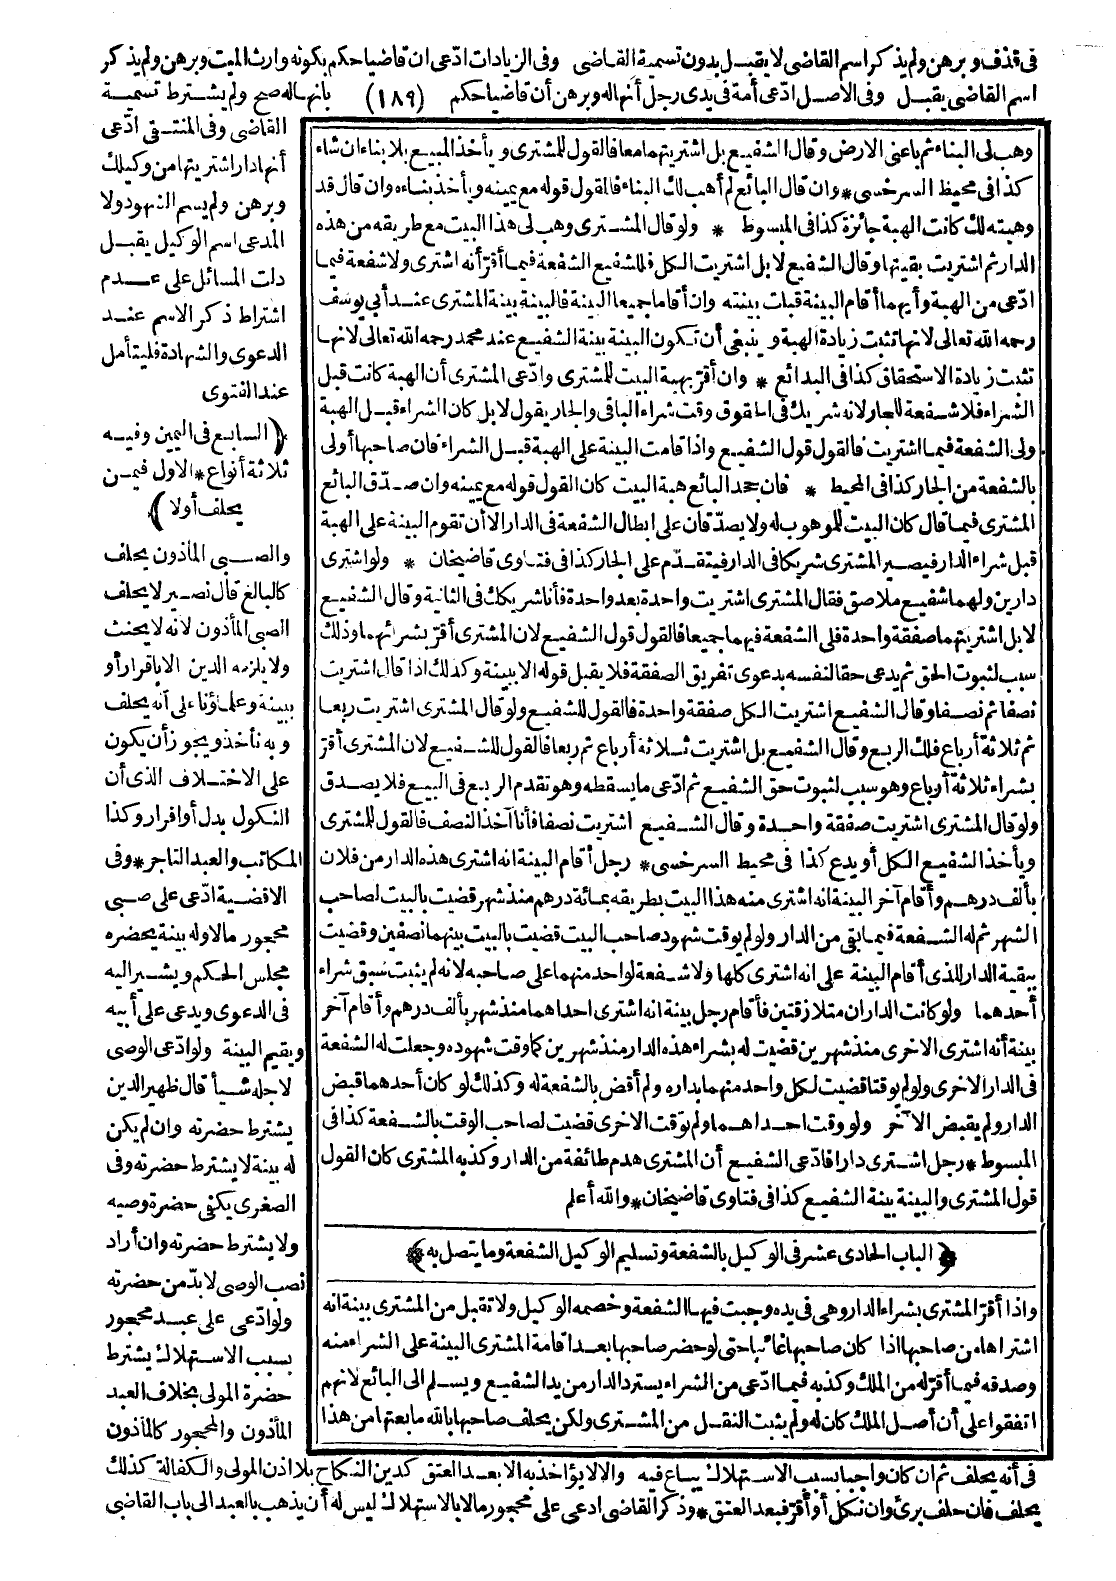 فى قذف وبرهن ولم يذكر اسم القاضى لا يقبل بدون تسمية القاضى وفى الزيادات ادّعى ان قاضيا حكم بكونه وارث الميت وبرهن ولم يذكر
اسم القاضى يقبل وفى الاصل ادّعى أمة فى يدى رجل أنها له وبرهن أن قاضيا حكم (١٨٩) بأنها له صح ولم يشترط تسمية
القاضى وفى المنتقى ادّعى
أنها دار اشتريتها من وكيلك
وبرهن ولم يسم الشهود ولا
المدعى اسم الوكيل يقبل
دلت المسائل على عدم
اشتراط ذكر الاسم عند
الدعوى والشهادة فليتأمل
عند الفتوى
﴿السابع فى اليمين وفيه
ثلاثة أنواع * الاول فيمن
يحلف أولا﴾
والصبى المأذون يحلف
كالبالغ قال نصير لا يحلف
الصبى المأذون لانه لا يحنث
ولا يلزمه الدين الا باقرار أو
ببينة وعلماؤنا على أنه يحلف
وبه نأخذ ويجوز أن يكون
على الاختلاف الذى أن
النكول بدل أو اقرار وكذا
المكاتب والعبد التاجر * وفى
الاقضية ادّعى على صبى
محجور مالا وله بينة يحضره
مجلس الحكم ويشير اليه
فى الدعوى ويدعى على أبيه
ويقيم البينة ولو ادّعى الوصى
لاجله شيأ قال ظهير الدين
يشترط حضرته وان لم يكن
له بينة لا يشترط حضرته وفى
الصغرى يكفى حضرة وصيه
ولا يشترط حضرته وان أراد
نصب الوصى لا بدّ من حضرته
ولو ادّعى على عبد محجور
بسبب الاستهلاك يشترط
حضرة المولى بخلاف العبد
المأذون والمحجور كالمأذون
وهب لى البناء ثم باعنى الارض وقال الشفيع بل اشتريتهما معا فالقول للمشترى ويأخذ المبيع بلا بناء ان شاء
كذا فى محيط السرخسى * وان قال البائع لم أهب لك البناء فالقول قوله مع يمينه ويأخذ بناءه وان قال قد
وهبته لك كانت الهبة جائزة كذا فى المبسوط * ولو قال المشترى وهب لى هذا البيت مع طريقه من هذه
الدار ثم اشتريت بقيتها وقال الشفيع لا بل اشتريت الكل فللشفيع الشفعة فيما أقرّ أنه اشترى ولا شفعة فيما
ادّعى من الهبة وأيهما أقام البينة قبلت بينته وان أقاما جميعا البينة فالبينة بينة المشترى عند أبى يوسف
رحمه الله تعالى لانها تثبت زيادة الهبة و ينبغى أن تكون البينة بينة الشفيع عند محمد رحمه الله تعالى لانها
تثبت زيادة الاستحقاق كذا فى البدائع * وان أقرّ بهبة البيت للمشترى وادّعى المشترى أن الهبة كانت قبل
الشراء فلا شفعة للجار لانه شريك فى الحقوق وقت شراء الباقى والجار يقول لا بل كان الشراء قبل الهبة
ولى الشفعة فيما اشتريت فالقول قول الشفيع واذا قامت البينة على الهبة قبل الشراء فان صاحبها أولى
بالشفعة من الجار كذا فى المحيط * فان جحد البائع هبة البيت كان القول قوله مع يمينه وان صدّق البائع
المشترى فيما قال كان البيت للموهوب له ولا يصدّقان على ابطال الشفعة فى الدار الا أن تقوم البينة على الهبة
قبل شراء الدار فيصير المشترى شريكا فى الدار فيتقدّم على الجار كذا فى فتاوى قاضيخان * ولو اشترى
دارين ولهما شفيع ملاصق فقال المشترى اشتريت واحدة بعد واحدة فأنا شريكك فى الثانية وقال الشفيع
لا بل اشتريتهما صفقة واحدة فلى الشفعة فيهما جميعا فالقول قول الشفيع لان المشترى أقرّ بشرائهما وذلك
سبب لثبوت الحق ثم يدعى حقا لنفسه بدعوى تفريق الصفقة فلا يقبل قوله الا ببينة وكذلك اذا قال اشتريت
نصفا ثم نصفا وقال الشفيع اشتريت الكل صفقة واحدة فالقول للشفيع ولو قال المشترى اشتريت ربعا
ثم ثلاثة أرباع فلك الربع وقال الشفيع بل اشتريت ثلاثة أرباع ثم ربعا فالقول للشفيع لان المشترى أقرّ
بشراء ثلاثة أرباع وهو سبب لثبوت حق الشفيع ثم ادّعى ما يسقطه وهو تقدم الربع فى البيع فلا يصدق
ولو قال المشترى اشتريت صفقة واحدة وقال الشفيع اشتريت نصفا فأنا آخذ النصف فالقول للمشترى
ويأخذ الشفيع الكل أو يدع كذا فى محيط السرخسى * رجل أقام البينة انه اشترى هذه الدار من فلان
بألف درهم وأقام آخر البينة انه اشترى منه هذا البيت بطريقه بمائة درهم منذ شهر قضيت بالبيت لصاحب
الشهر ثم له الشفعة فيما بقى من الدار ولو لم يوقت شهود صاحب البيت قضيت بالبيت بينهما نصفين وقضيت
ببقية الدار للذى أقام البينة على انه اشترى كلها ولا شفعة لواحد منهما على صاحبه لانه لم يثبت سبق شراء
أحدهما ولو كانت الداران متلازقتين فأقام رجل بينة انه اشترى احداهما منذ شهر بألف درهم وأقام آخر
بينة أنه اشترى الاخرى منذ شهرين قضيت له بشراء هذه الدار منذ شهرين كما وقت شهوده وجعلت له الشفعة
فى الدار الاخرى ولو لم يوقتا قضيت لكل واحد منهما بداره ولم أقض بالشفعة له وكذلك لو كان أحدهما قبض
الدار ولم يقبض الآخر ولو وقت احداهما ولم توقت الاخرى قضيت لصاحب الوقت بالشفعة كذا فى
المبسوط * رجل اشترى دارا فادّعى الشفيع أن المشترى هدم طائفة من الدار وكذبه المشترى كان القول
قول المشترى والبينة بينة الشفيع كذا فى فتاوى قاضيخان * والله أعلم
﴿الباب الحادى عشر فى الوكيل بالشفعة وتسليم الوكيل الشفعة وما يتصل به﴾
واذا أقرّ المشترى بشراء الدار وهى فى يده وجبت فيها الشفعة وخصمه الوكيل ولا تقبل من المشترى بينة انه
اشتراها من صاحبها اذا كان صاحبها غائبا حتى لو حضر صاحبها بعد اقامة المشترى البينة على الشراء منه
وصدقه فيما أقرّ له من الملك وكذبه فيما ادّعى من الشراء يسترد الدار من يد الشفيع ويسلم الى البائع لانهم
اتفقوا على أن أصل الملك كان له ولم يثبت النقل من المشترى ولكن يحلف صاحبها بالله ما بعتها من هذا
فى أنه يحلف ثم ان كان واجبا بسبب الاستهلاك يباع فيه والا لا يؤاخذ به الا بعد العتق كدين النكاح بلا اذن المولى والكفالة كذلك
يحلف فان حلف برئ وان نكل أو أقرّ فبعد العتق * وذكر القاضى ادعى على محجور مالا بالاستهلاك ليس له أن يذهب بالعبد الى باب القاضى